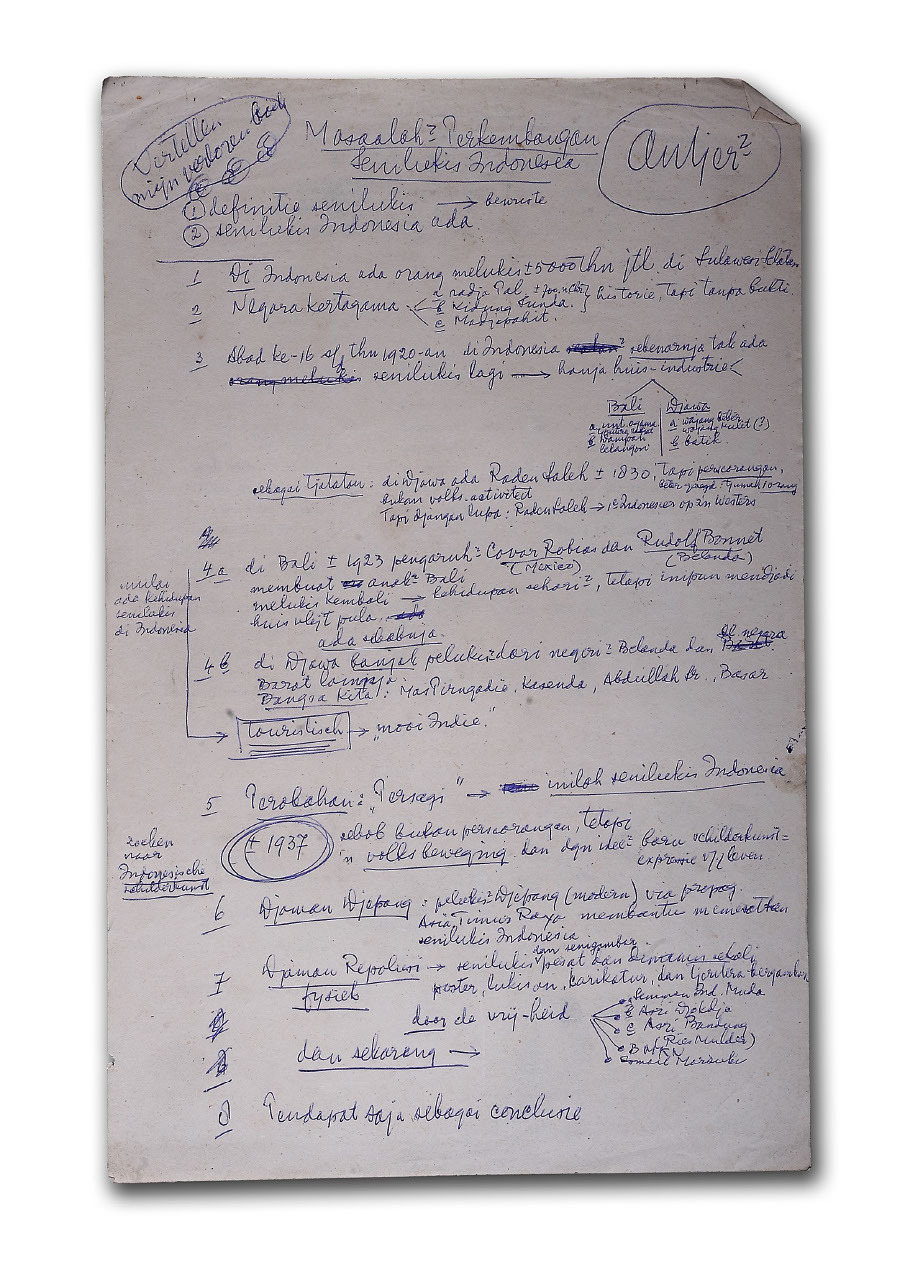 Vertellen
mijn verloren boek
Masaalah² Perkembangan
Senilukis Indonesia
Antjer²
1 definitie senilukis → bewuste
2 senilukis Indonesia ada
1 Di Indonesia ada orang melukis ± 5000 thn jtl di Sulawesi Selatan
2 Negara Kertagama
a radja Pal.
b Kidung Sunda
c Madjapahit.
} historie, tapi tanpa bukti.
3 Abad ke-16 s/ thn 1920-an di Indonesia sebenarnja tak ada
orang melukis senilukis lagi → hanja huis-industrie <
Bali
a unt. agama
b
Djawa
a wajang beber
wajang kulit (?)
b batik
sebagai tjatatan: di Djawa ada Raden Saleh ± 1830, tapi perseorangan,
bukan volks-activiteit
Tapi djangan lupa: Raden Saleh → 1e Indonesier op zn Westers
4a di Bali ± 1923 pengaruh² Covar Robias dan Rudolf Bonnet
(Mexico) (Belanda)
membuat anak² Bali
melukis kembali → kehidupan sehari², tetapi inipun mendjadi
huis vlijt pula.
ada sebabnja.
mulai
ada kehidupan
senilukis
di Indonesia
4b di Djawa banjak pelukis² dari negeri² Belanda dan negara
Barat lainnja.
Bangsa kita: Mas Pirngadie, Kasenda, Abdullah Sr., Basar
touristisch → „mooi Indie"
5 Perobahan: „Persagi" → inilah senilukis Indonesia
± 1937
sebab bukan perseorangan, tetapi
'n volks beweging dan dgn idee² baru schilderkunst =
expressie v/h leven.
zoeken
naar
Indonesische
schilderkunst
6 Djaman Djepang: pelukis² Djepang (modern) via propag.
Asia Timur Raya membantu memesatkan
senilukis Indonesia
7 Djaman Repolusi → senilukis pesat dan dinamis sekali
dan senigambar
fysiek
poster, lukisan, karikatur, dan
door de vrij-heid
Seniman Ind. Muda
b Asri Djokdja
c Asri Bandung
(Ries Mulder)
BMKN
dan sekarang →
8 Pendapat saja sebagai conclusie